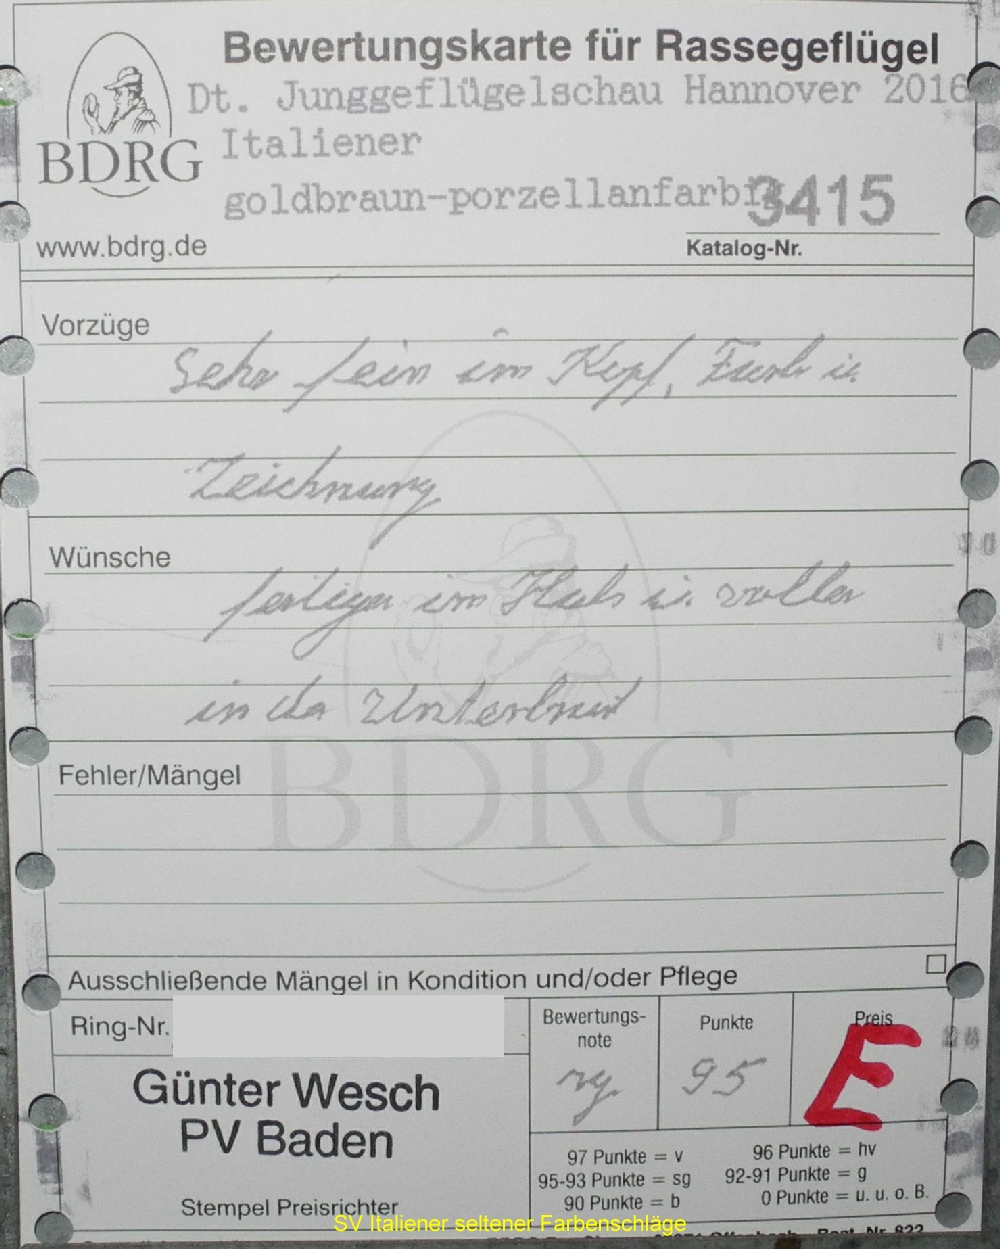 Bewertungskarte für Rassegeflügel
Dt. Junggeflügelschau Hannover 2016
Italiener
goldbraun-porzellanfarbig
3415
BDRG
www.bdrg.de
Katalog-Nr.
Vorzüge
Sehr fein im Kopf, Farb u.
Zeichnung
Wünsche
fertiger im Hals u. voller
in der Unterbrust
BDRG
Fehler/Mängel
Ausschließende Mängel in Kondition und/oder Pflege
Ring-Nr.
Bewertungs-
note
Punkte
Preis
sg
95
E
Günter Wesch
PV Baden
Stempel Preisrichter
97 Punkte = v
96 Punkte = hv
95-93 Punkte = sg
92-91 Punkte = g
90 Punkte = b
0 Punkte = u. u. o. B.
SV Italiener seltener Farbenschläge